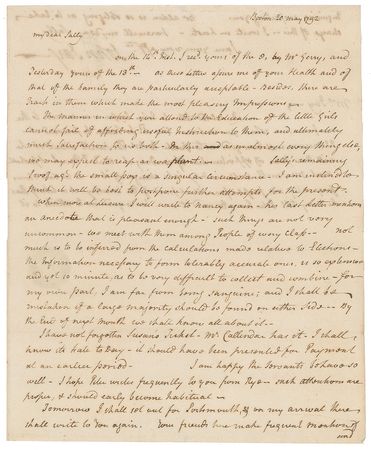 Boston 20 May 1792
My dear Sally
on the 14th Inst. I recd. yours of the 8, by Mr Gerry, and
Yesterday yours of the 13th — as these Letters assure me of your Health and of
that of the family they are particularly acceptable. Besides, there are
Traits in them which made the most pleasing Impressions.
The manner in which you attend to the Education of the little Girls
cannot fail of affording useful Instruction to them, and ultimately
much Satisfaction to us both. In this as in almost every thing else,
we may expect to reap as we plant. Sally's remaining
proof agt the small pox is a singular circumstance — I am inclined to
think it will be best to postpone further attempts for the present.
when more at leisure I will write to Nancy again — her last letter mentions
an anecdote that is pleasant enough — such things are not very
uncommon — we meet with them among People of every class — not
much is to be inferred from the Calculations made relative to Elections —
the Information necessary to form tolerably accurate ones, is so extensive
and yet so minute as to be very difficult to collect and combine — for
my own part I am far from being sanguine; and I shall be
mistaken if a large majority should be found on either side — By
the End of next month we shall know all about it —
I have not forgotten Susan's Ticket — Mr Callendar has it — I shall
know its fate to Day — it should have been presented for Payment
at an earlier period — I am happy the Servants behave so
well — I hope Peter writes frequently to you from Rye — such attentions are
proper, & should early become habitual —
Tomorrow I shall set out for Portsmouth, & on my arrival there
shall write to You again. Your friends here make frequent mention of
and